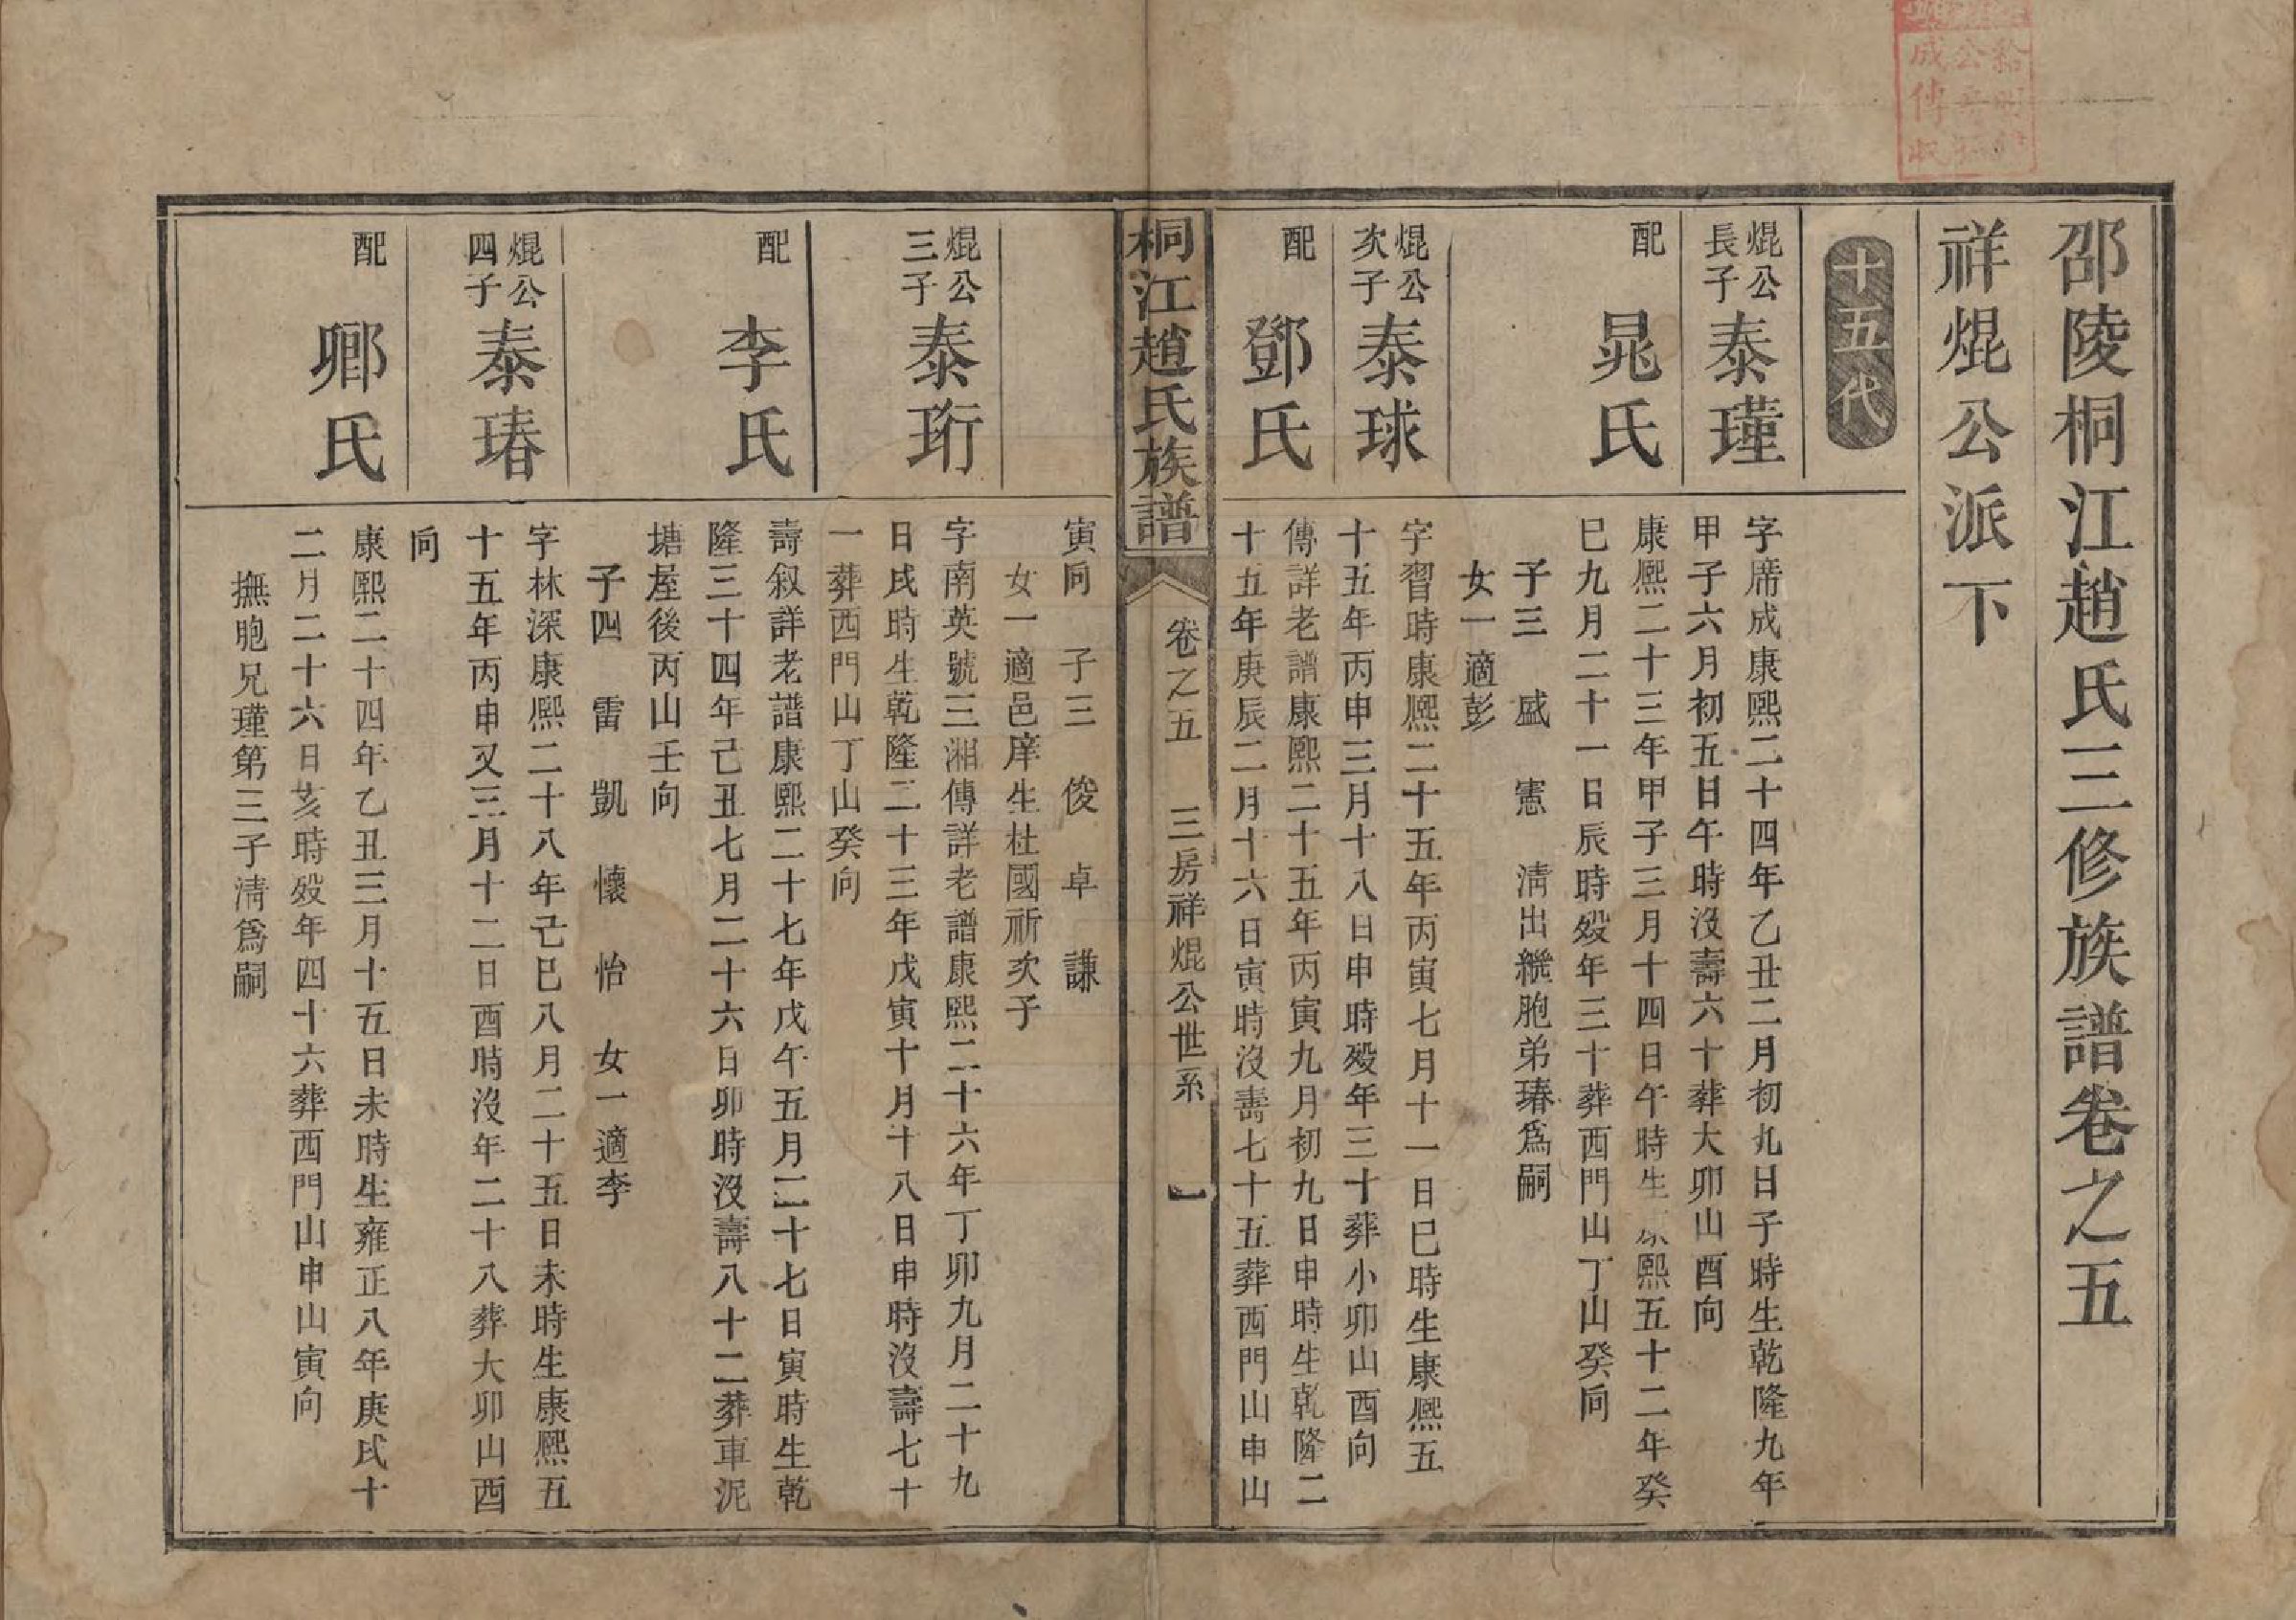 邵陵桐江趙氏三修族譜卷之五
祥焜公派下
十五代
焜公
長子
泰瑾
字席成康熙二十四年乙丑二月初九日子時生乾隆九年
甲子六月初五日午時沒壽六十葬大卯山酉向
配
晁氏
康熙二十三年甲子三月十四日午時生康熙五十二年癸
巳九月二十一日辰時歿年三十葬西門山丁山癸向
子三 盛 憲 清出繼胞弟瑃爲嗣
女一適彭
焜公
次子
泰球
字習時康熙二十五年丙寅七月十一日巳時生康熙五
十五年丙申三月十八日申時歿年三十葬小卯山酉向
配
鄧氏
傳詳老譜康熙二十五年丙寅九月初九日申時生乾隆二
十五年庚辰二月十六日寅時沒壽七十五葬西門山申山
桐江趙氏族譜
卷之五 三房祥焜公世系 一
寅向 子三 俊 卓 謙
女一適邑庠生杜國祈次子
焜公
三子
泰珩
字南英號三湘傳詳老譜康熙二十六年丁卯九月二十九
日戌時生乾隆二十三年戊寅十月十八日申時沒壽七十
一葬西門山丁山癸向
配
李氏
壽叙詳老譜康熙二十七年戊午五月二十七日寅時生乾
隆三十四年己丑七月二十六日卯時沒壽八十二葬車泥
塘屋後丙山壬向
子四 雷 凱 懷 怡 女一適李
焜公
四子
泰瑃
字林深康熙二十八年己巳八月二十五日未時生康熙五
十五年丙申又三月十二日酉時沒年二十八葬大卯山酉
向
配
鄉氏
康熙二十四年乙丑三月十五日未時生雍正八年庚戌十
二月二十六日亥時歿年四十六葬西門山申山寅向
撫胞兄瑾第三子清爲嗣